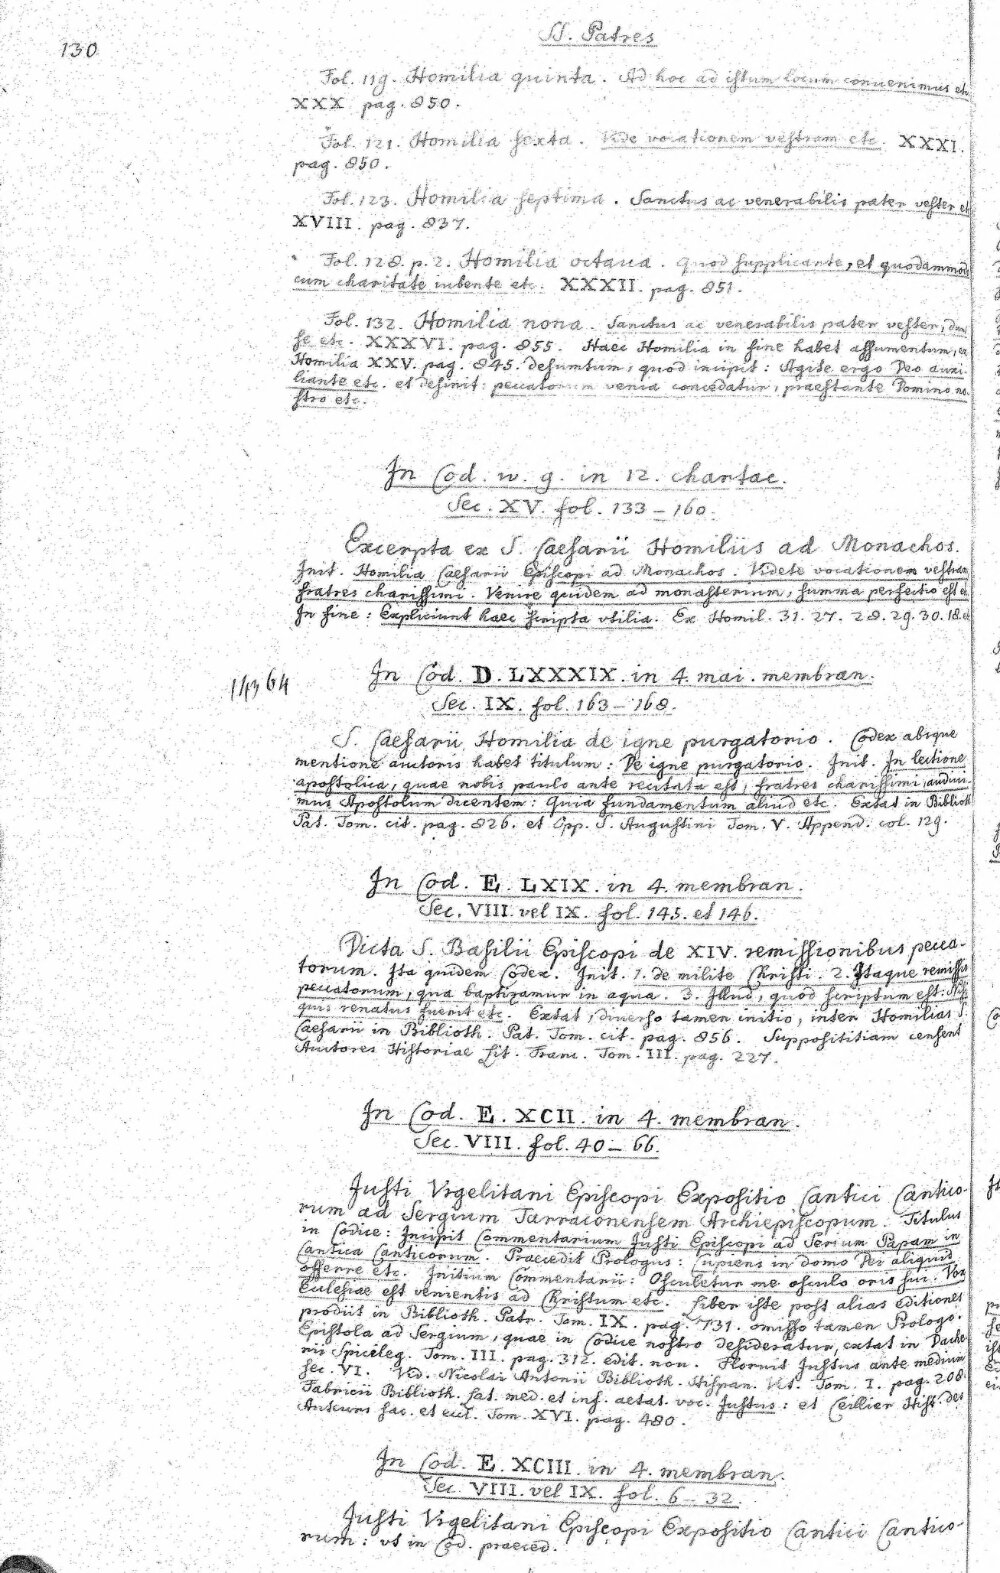 130
SS. Patres
Fol. 119. Homilia quinta. Ad hoc ad istum locum conuenimus etc.
XXX pag. 850.
Fol. 121. Homilia sexta. Vide vocationem vestram etc. XXXI.
pag. 850.
Fol. 123. Homilia septima. Sanctus ac venerabilis pater vester et
XVIII. pag. 837.
Fol. 128. p. 2. Homilia octaua. Quod supplicante, et quodammodo
cum charitate iubente etc. XXXII. pag. 851.
Fol. 132. Homilia nona. Sanctus ac venerabilis pater vester, dum
se etc. XXXVI. pag. 855. Haec Homilia in fine habet assumentum, ex
Homilia XXV. pag. 845. desumtum, quod incipit: Agite ergo Deo auxi-
liante etc. et desinit: peccatorum venia concedatur, praestante Domino no-
stro etc.
In Cod. w. g. in 12. chartac.
Sec. XV. fol. 133 – 160.
Excerpta ex S. Caesarii Homiliis ad Monachos.
Init. Homilia Caesarii Episcopi ad Monachos. Videte vocationem vestram
fratres charissimi. Venire quidem ad monasterium, summa perfectio est et
In fine: Expliciunt haec scripta vtilia. Ex Homil. 31. 27. 28. 29. 30. 18. et
14364
In Cod. D. LXXXIX. in 4. mai. membran.
Sec. IX. fol. 163 – 168.
S. Caesarii Homilia de igne purgatorio. Codex absque
mentione auctoris habet titulum: De igne purgatorio. Init. In lectione
apostolica, quae nobis paulo ante recitata est, fratres charissimi, audiui-
mus Apostolum dicentem: Quia fundamentum aliud etc. Extat in Biblioth
Pat. Tom. cit. pag. 826. et Opp. S. Augustini Tom. V. Append. col. 129.
In Cod. E. LXIX. in 4. membran.
Sec. VIII. vel IX. fol. 145. et 146.
Dicta S. Basilii Episcopi de XIV. remissionibus pecca-
torum. Ita quidem Codex. Init. 1. de milite Christi. 2. Itaque remissio
peccatorum, qua baptizamur in aqua. 3. Illud, quod scriptum est: Nisi
quis renatus fuerit etc. Extat, diuerso tamen initio, inter Homilias S.
Caesarii in Biblioth. Pat. Tom. cit. pag. 856. Supposititiam censent
Auctores Historiae Lit. Franc. Tom. III. pag. 227.
In Cod. E. XCII. in 4. membran.
Sec. VIII. fol. 40 – 66.
Justi Vrgelitani Episcopi Expositio Cantici Cantico-
rum ad Sergium Tarraconensem Archiepiscopum. Titulus
in Codice: Incipit Commentarium Justi Episcopi ad Serium Papam in
Cantica Canticorum. Praecedit Prologus: Cupiens in domo Dei aliquid
offerre etc. Initium Commentarii: Osculetur me osculo oris sui. Vox
Eculesiae est venientis ad Christum etc. Liber iste post alias editiones
prodiit in Biblioth. Patr. Tom. IX. pag. 731. omisso tamen Prologo.
Epistola ad Sergium, quae in Codice nostro desideratur, extat in Dache-
rii Spicileg. Tom. III. pag. 312. edit. nou. Floruit Justus ante medium
sec. VI. Vid. Nicolai Antonii Biblioth. Hispan. Vet. Tom. I. pag. 208.
Fabricii Biblioth. Lat. med. et inf. aetat. voc. Justus: et Ceillier Hist. des
Auteurs sac. et eccl. Tom. XVI. pag. 480.
In Cod. E. XCIII. in 4. membran.
Sec. VIII. vel IX. fol. 6 – 32.
Justi Vrgelitani Episcopi Expositio Cantici Cantico-
rum: vt in Cod. praeced.